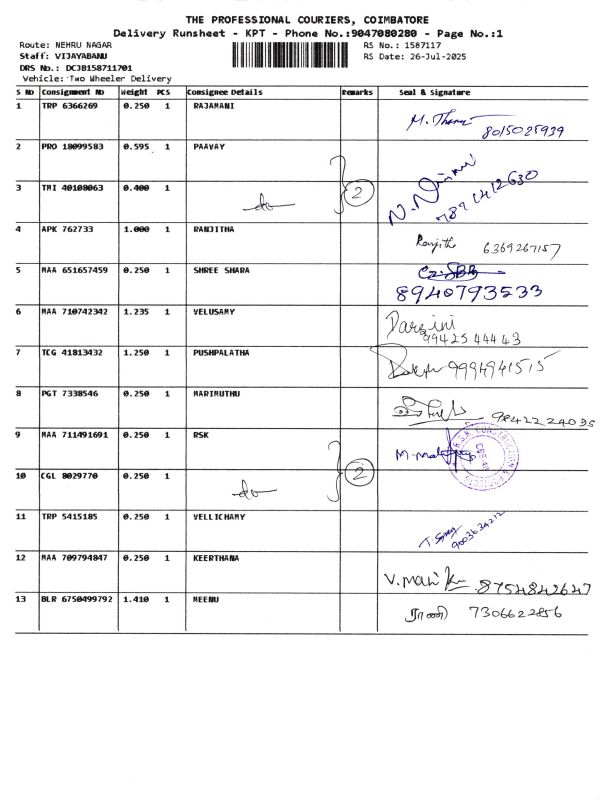 THE PROFESSIONAL COURIERS, COIMBATORE
Delivery Runsheet - KPT - Phone No.:9047080280 - Page No.:1
Route: NEHRU NAGAR
Staff: VIJAYABANU
DRS No.: DCJB158711701
Vehicle: Two Wheeler Delivery
RS No.: 1587117
RS Date: 26-Jul-2025
S No Consignment No Weight PCS Consignee Details Remarks Seal & signature
1 TRP 6366269 0.250 1 RAJAMANI M. 8015025939
2 PRO 18099583 0.595 1 PAAVAY
3 TMI 40108063 0.400 1 do 2 N. 7871412630
4 APK 762733 1.000 1 RANJITHA Ranjith 6369267157
5 MAA 651657459 0.250 1 SHREE SHARA 8940793533
6 MAA 710742342 1.235 1 VELUSAMY Darsini 9942544443
7 TCG 41813432 1.250 1 PUSHPALATHA 9994941515
8 PGT 7338546 0.250 1 MARIMUTHU 9842224035
9 MAA 711491691 0.250 1 RSK M.
10 CGL 8029770 0.250 1 do 2
11 TRP 5415185 0.250 1 VELLICHAMY 9003634212
12 MAA 709794847 0.250 1 KEERTHANA V. Mani 8754842647
13 BLR 6750499792 1.410 1 MEENU ராணி 7306622856